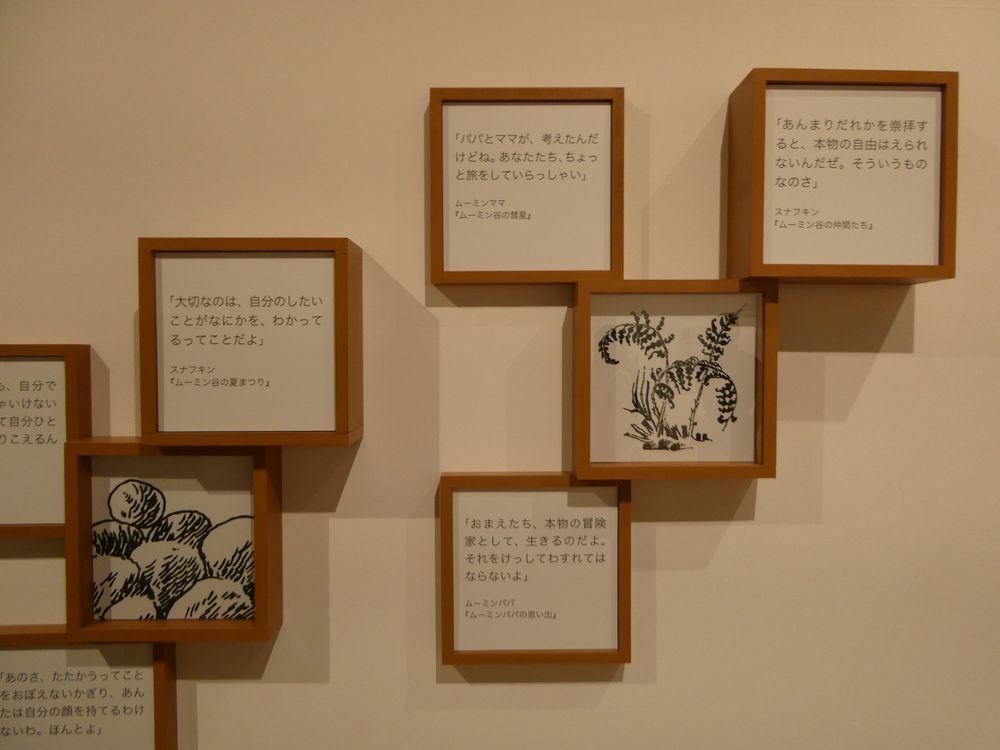 「パパとママが、考えたんだ
けどね。あなたたち、ちょっ
と旅をしていらっしゃい」
ムーミンママ
『ムーミン谷の彗星』
「あんまりだれかを崇拝す
ると、本物の自由はえられ
ないんだぜ。そういうもの
なのさ」
スナフキン
『ムーミン谷の仲間たち』
「大切なのは、自分のしたい
ことがなにかを、わかって
るってことだよ」
スナフキン
『ムーミン谷の夏まつり』
も、自分で
ゃいけない
て自分ひと
りこえるん
「おまえたち、本物の冒険
家として、生きるのだよ。
それをけっしてわすれては
ならないよ」
ムーミンパパ
『ムーミンパパの思い出』
「あのさ、たたかうってこと
をおぼえないかぎり、あん
たは自分の顔を持てるわけ
ないわ。ほんとよ」